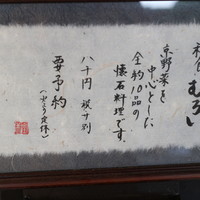 和食 むろい
京野菜を
中心とした
全約10品の
懐石料理です。
八千円 税サ別
要予約